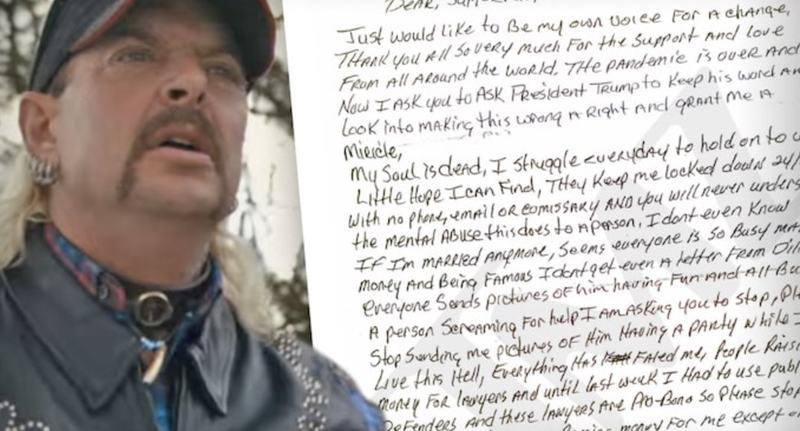 Dear,
Just would like to Be my own voice For A change,
Thank you All So very much For the Support and Love
From All Around the World. The pandemic is over And
Now I ask you to Ask President Trump to keep his word An
Look into MAking this wrong A Right And grant me A
Miricle,
My Soul is dead, I struggle everyday to hold on to
Little Hope I can Find, They Keep me locked down 24/
With no phone, email OR comissary AND you will never unders
the mental ABUSE this does to A person, I dont even Know
IF I'm married Anymore, Seems everyone is So Busy MA
Money And Being Famous I dont get even A letter From Dill
everyone Sends pictures of him having Fun And All Bu
A person Screaming For help I Am Asking you to Stop, Pl
Stop Sending me pictures of Him Having A party while I
Live this Hell, Everything Has Fated me, People Rais
Money For lawyers and until last week I Had to use publ
Defenders And these lawyers Are Pro-Bono So Please Stop
money For me except